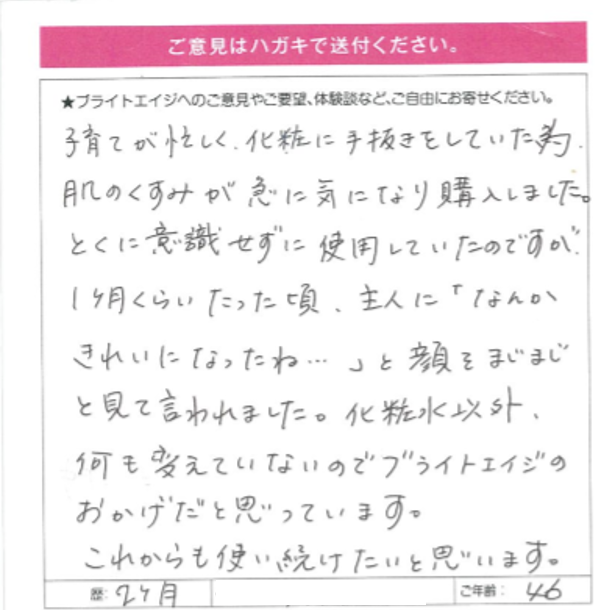 ご意見はハガキで送付ください。
★ブライトエイジへのご意見やご要望、体験談など、ご自由にお寄せください。
子育てが忙しく、化粧に手抜きをしていた為、
肌のくすみが急に気になり購入しました。
とくに意識せずに使用していたのですが、
1ヶ月くらいたった頃、主人に「なんか
きれいになったね…」と顔をまじまじ
と見て言われました。化粧水以外、
何も変えていないのでブライトエイジの
おかげだと思っています。
これからも使い続けたいと思います。
歴: 2ヶ月 ご年齢: 46